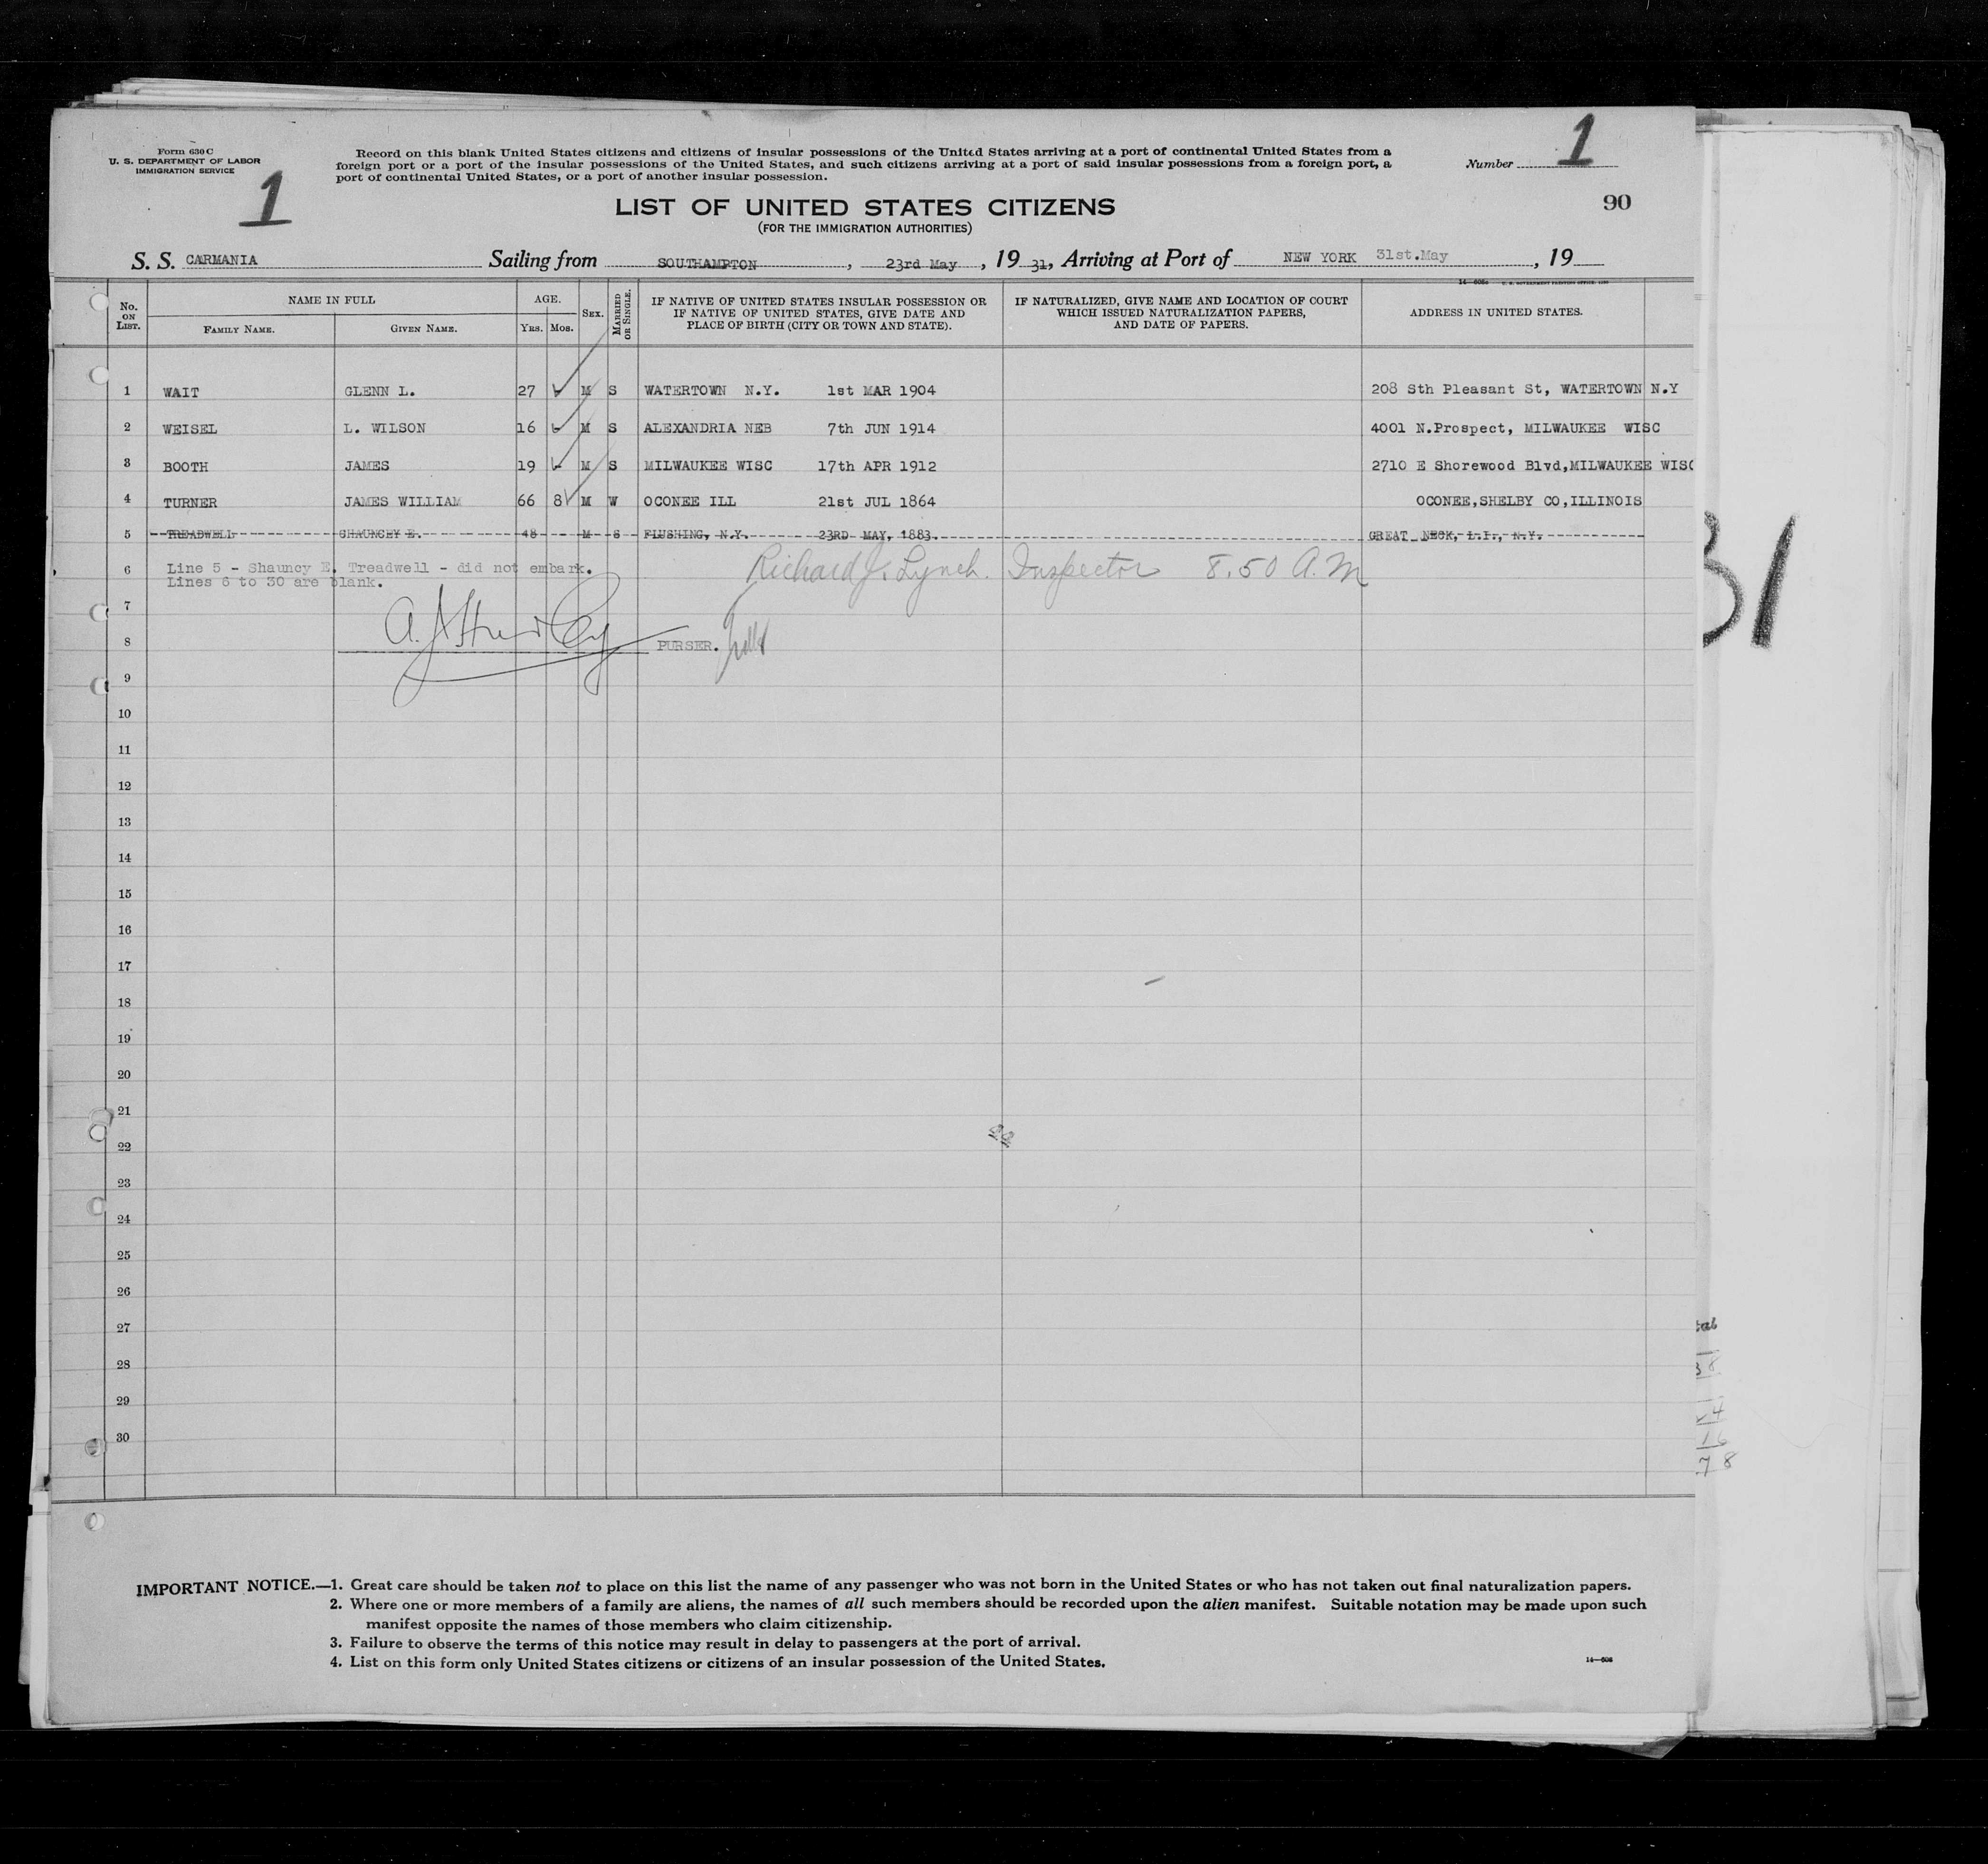 Form 630 C
U. S. DEPARTMENT OF LABOR
IMMIGRATION SERVICE
1
Record on this blank United States citizens and citizens of insular possessions of the United States arriving at a port of continental United States from a
foreign port or a port of the insular possessions of the United States, and such citizens arriving at a port of said insular possessions from a foreign port, a
port of continental United States, or a port of another insular possession.
Number 1
LIST OF UNITED STATES CITIZENS
(FOR THE IMMIGRATION AUTHORITIES)
90
S. S. CARMANIA Sailing from SOUTHAMPTON, 23rd May, 19 31, Arriving at Port of NEW YORK 31st.May, 19
No. ON LIST. NAME IN FULL AGE. SEX. MARRIED OR SINGLE. IF NATIVE OF UNITED STATES INSULAR POSSESSION OR IF NATIVE OF UNITED STATES, GIVE DATE AND PLACE OF BIRTH (CITY OR TOWN AND STATE). IF NATURALIZED, GIVE NAME AND LOCATION OF COURT WHICH ISSUED NATURALIZATION PAPERS, AND DATE OF PAPERS. ADDRESS IN UNITED STATES.
FAMILY NAME. GIVEN NAME. YRS. MOS.
1 WAIT GLENN L. 27 M S WATERTOWN N.Y. 1st MAR 1904 208 Sth Pleasant St, WATERTOWN N.Y
2 WEISEL L. WILSON 16 M S ALEXANDRIA NEB 7th JUN 1914 4001 N.Prospect, MILWAUKEE WISC
3 BOOTH JAMES 19 M S MILWAUKEE WISC 17th APR 1912 2710 E Shorewood Blvd,MILWAUKEE WISC
4 TURNER JAMES WILLIAM 66 8 M W OCONEE ILL 21st JUL 1864 OCONEE,SHELBY CO,ILLINOIS
5 TREADWELL SHAUNCEY E. 48 M S FLUSHING, N.Y. 23RD MAY, 1883. GREAT NECK, L.I., N.Y.
6 Line 5 - Shauncy E. Treadwell - did not embark.
Lines 6 to 30 are blank.
Richard J. Lynch. Inspector 8.50 A.M
7
8 PURSER.
9
10
11
12
13
14
15
16
17
18
19
20
21
22
23
24
25
26
27
28
29
30
IMPORTANT NOTICE.—1. Great care should be taken not to place on this list the name of any passenger who was not born in the United States or who has not taken out final naturalization papers.
2. Where one or more members of a family are aliens, the names of all such members should be recorded upon the alien manifest. Suitable notation may be made upon such
manifest opposite the names of those members who claim citizenship.
3. Failure to observe the terms of this notice may result in delay to passengers at the port of arrival.
4. List on this form only United States citizens or citizens of an insular possession of the United States.
14—608
31